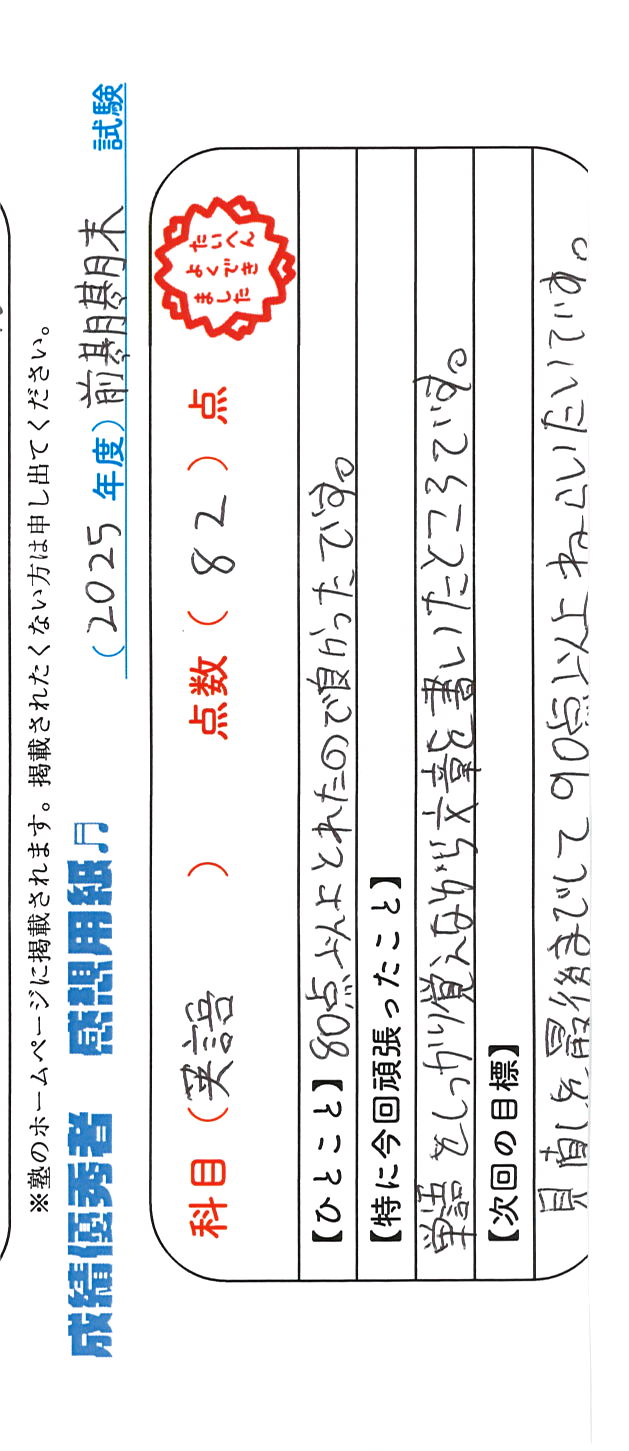 ※塾のホームページに掲載されます。掲載されたくない方は申し出てください。
成績優秀者　感想用紙♬　（2025年度）前期期末　試験
科目（英語　　）　点数（82）点
たいへん
よくでき
ました
【ひとこと】80点以上とれたので良かったです。
【特に今回頑張ったこと】
単語をしっかり覚えながら文章を書いたところです。
【次回の目標】
見直しを最後までして90点以上ねらいたいです。